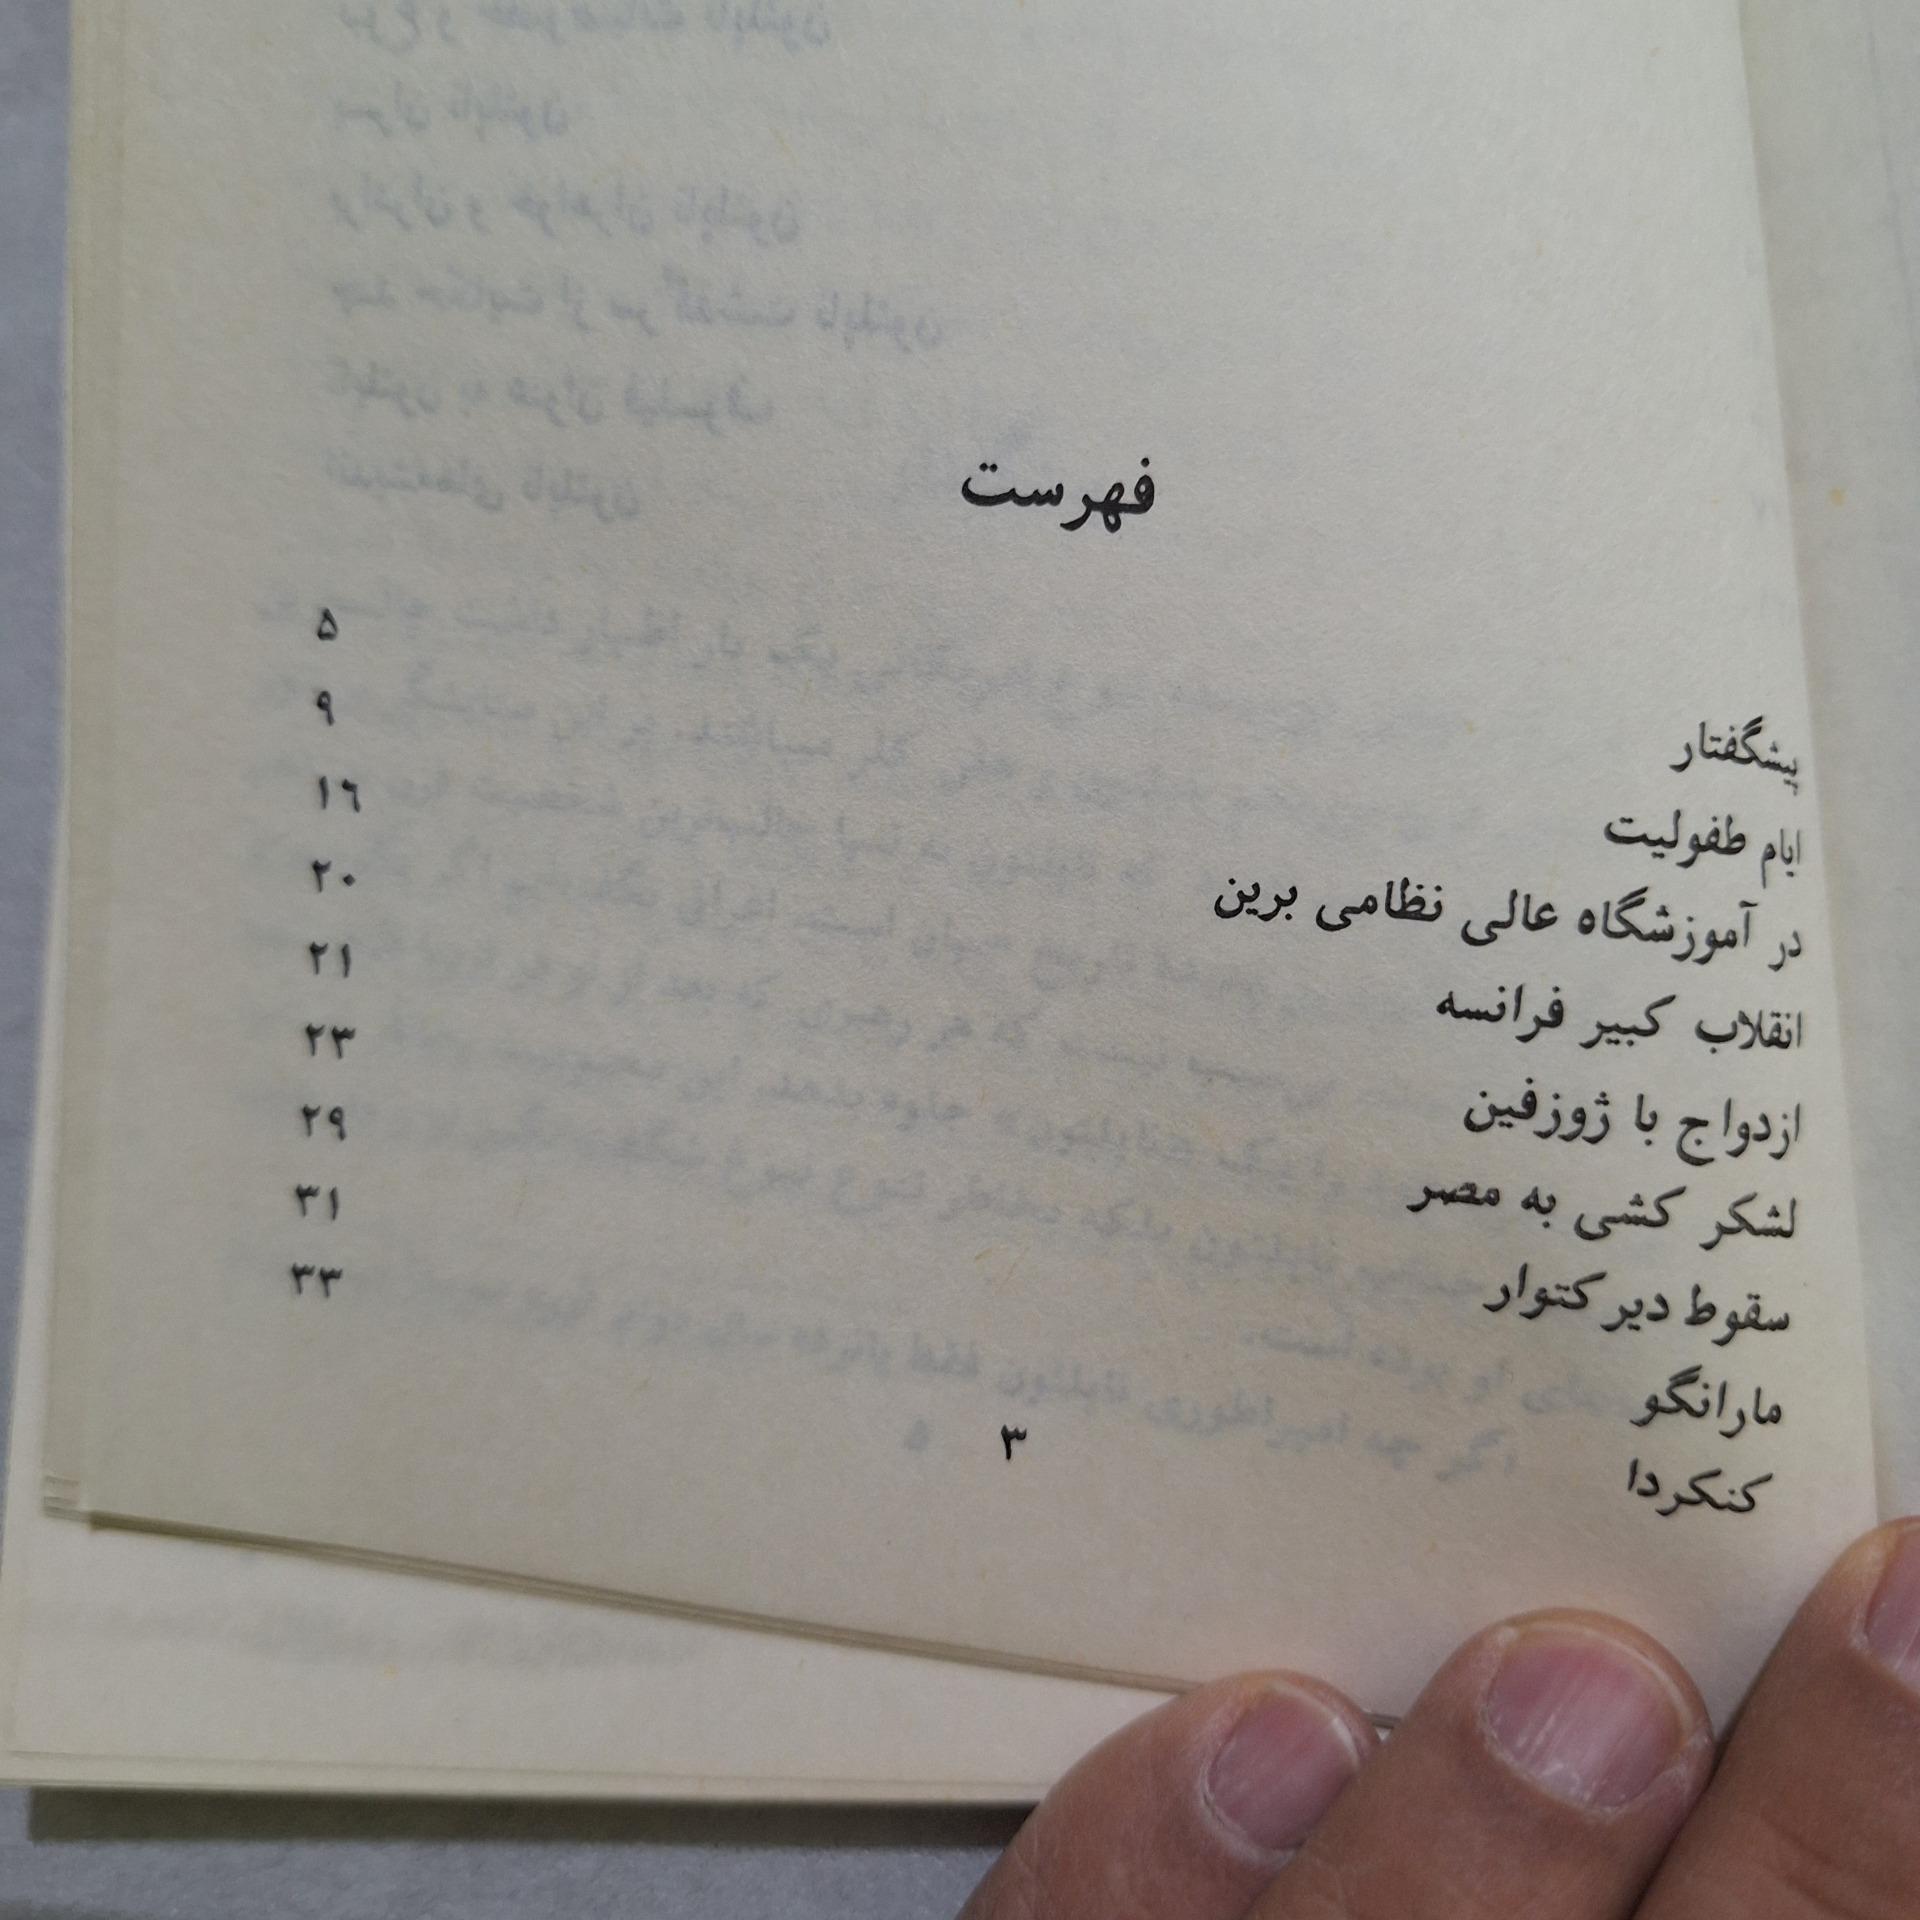 فهرست
پیشگفتار ۵
ایام طفولیت ۹
در آموزشگاه عالی نظامی برین ۱۶
انقلاب کبیر فرانسه ۲۰
ازدواج با ژوزفین ۲۱
لشکر کشی به مصر ۲۳
سقوط دیر کتوار ۲۹
مارانگو ۳۱
کنکردا ۳۳
۳